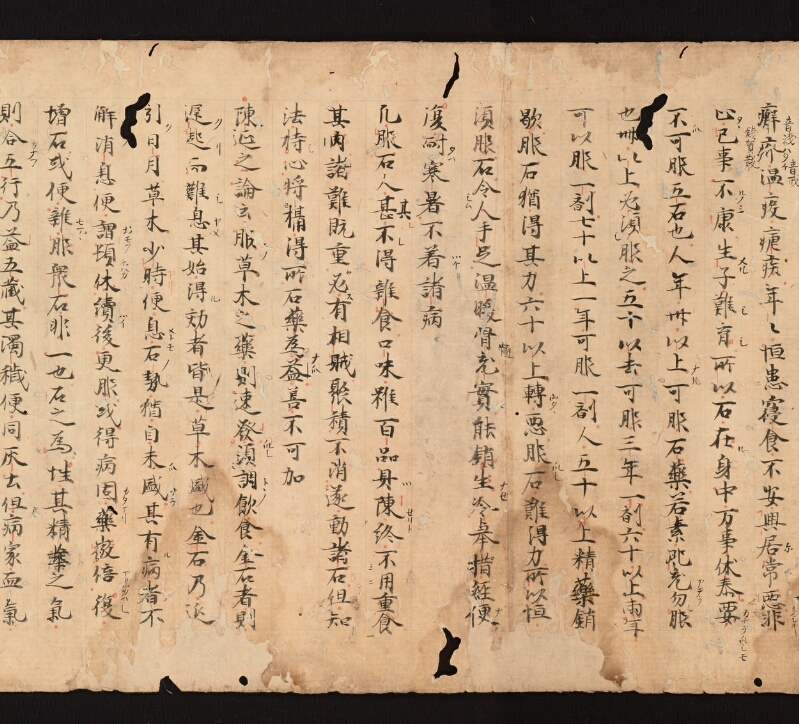 癬疥温疫瘧疾年〻恒患寝食不安興居常悪非
止己事不康生子難育所以石在身中万事休泰要
不可服五石也人年卅以上可服石藥若素肥充勿服
也卌以上必須服之五十以去可服三年一劑六十以上兩年
可以服一劑七十以上一年可服一劑人五十以上精藥銷
歇服石猶得其力六十以上轉悪服石難得力所以恒
須服石令人手足温暖骨充實能銷生冷舉措輕便
復耐寒暑不着諸病
凡服石人甚不得雜食口味雖百品具陳終不用重食
其肉諸難既重必有相賊聚積不消遂動諸石但知
法持心将攝得所石藥為益善不可加
陳延之論云服草木之藥則速發須調飲食金石者則
遲起而難息其始得効者皆是草木盛也金石乃延
引日月草木少時便息石勢猶自未盛其有病者不
解消息便謂頓休續後更服或得病固藥微倍後
増石或便雜服衆石非一也石之為性其精藥之氣
則合五行乃益五藏其濁穢便同灰土但病家血氣